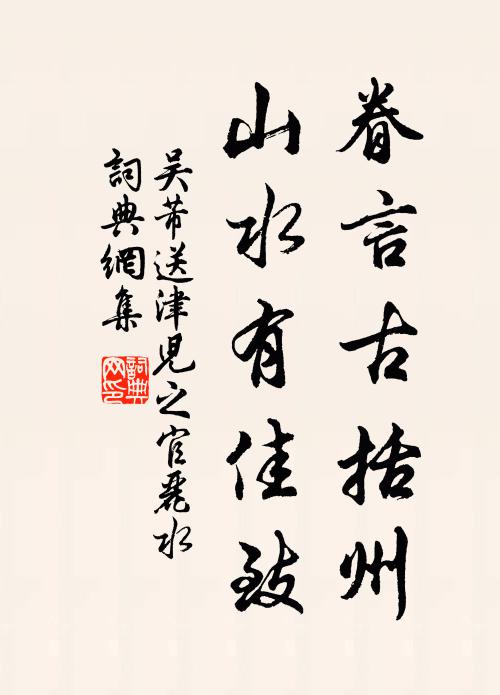 眷言古括州
山水有佳致
吴芾送津児之官麗水
詞典網集
詞典网印